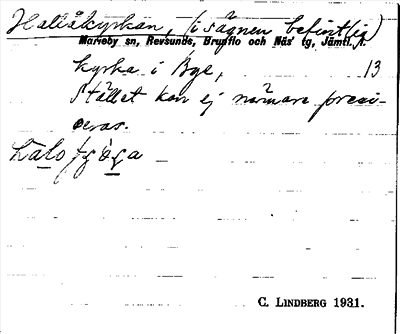 Hallåkyrkan, (i sägnen befintlig)
Marieby sn, Revsunds, Brunflo och Näs' tg, Jämtl. l.
kyrka i Bye, 13
Stället kan ej närmare preci-
seras.